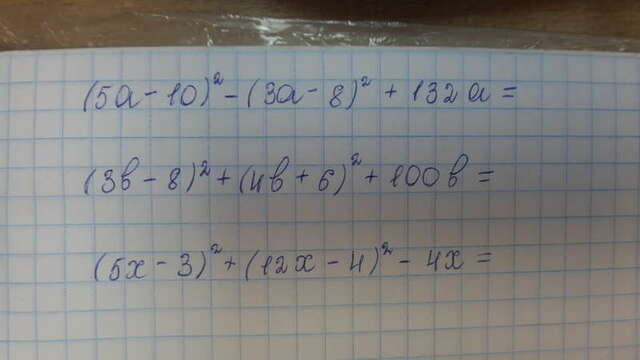 (5a - 10)² - (3a - 8)² + 132a =
(3b - 8)² + (4b + 6)² + 100b =
(5x - 3)² + (12x - 4)² - 4x =